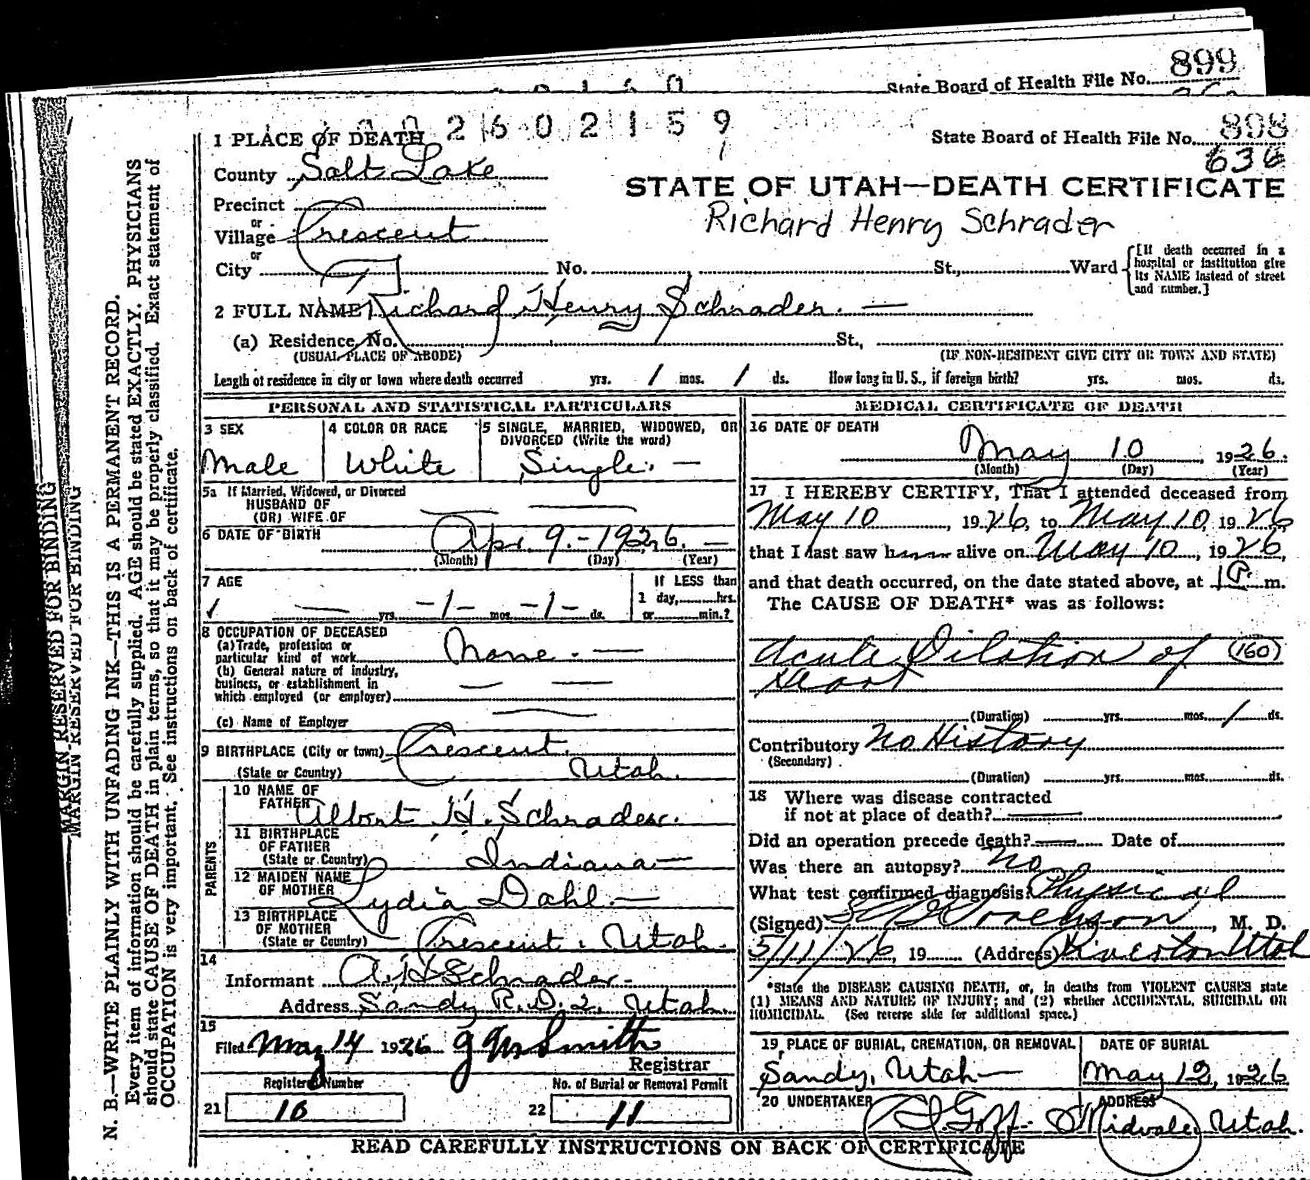 899
State Board of Health File No.
2602159
1 PLACE OF DEATH
State Board of Health File No. 898
636
County Salt Lake
STATE OF UTAH—DEATH CERTIFICATE
Precinct
Richard Henry Schrader
or
Village Crescent
or
City No. St., Ward
[If death occurred in a hospital or institution give its NAME instead of street and number.]
2 FULL NAME Richard Henry Schrader. —
(a) Residence, No. St.,
(USUAL PLACE OF ABODE) (IF NON-RESIDENT GIVE CITY OR TOWN AND STATE)
Length of residence in city or town where death occurred yrs. 1 mos. 1 ds. How long in U. S., if foreign birth? yrs. mos. ds.
PERSONAL AND STATISTICAL PARTICULARS
3 SEX
Male
4 COLOR OR RACE
White
5 SINGLE, MARRIED, WIDOWED, OR
DIVORCED (Write the word)
Single. —
5a If Married, Widowed, or Divorced
HUSBAND OF
(OR) WIFE OF
6 DATE OF BIRTH Apr. 9.-1926. —
(Month) (Day) (Year)
7 AGE
— yrs. -1- mos. -1- ds.
If LESS than
1 day, hrs.
or min.?
8 OCCUPATION OF DECEASED
(a) Trade, profession or
particular kind of work None. —
(b) General nature of industry,
business, or establishment in
which employed (or employer)
(c) Name of Employer
9 BIRTHPLACE (City or town) Crescent.
(State or Country) Utah.
PARENTS
10 NAME OF
FATHER Albert H. Schrader.
11 BIRTHPLACE
OF FATHER
(State or Country) Indiana—
12 MAIDEN NAME
OF MOTHER Lydia Dahl. —
13 BIRTHPLACE
OF MOTHER
(State or Country) Crescent. Utah.
14
Informant A. H. Schrader.
Address Sandy R. D. 2. Utah.
15
Filed May 14 1926 J M Smith
Registrar
Registered Number
21 16
No. of Burial or Removal Permit
22 11
MEDICAL CERTIFICATE OF DEATH
16 DATE OF DEATH
May 10, 1926.
(Month) (Day) (Year)
17 I HEREBY CERTIFY, That I attended deceased from
May 10, 1926, to May 10, 1926,
that I last saw h alive on May 10, 1926,
and that death occurred, on the date stated above, at 1 P. m.
The CAUSE OF DEATH* was as follows:
Acute Dilation of (160)
Heart
(Duration) yrs. mos. 1 ds.
Contributory No History
(Secondary)
(Duration) yrs. mos. ds.
18 Where was disease contracted
if not at place of death?
Did an operation precede death? Date of
Was there an autopsy? no
What test confirmed diagnosis? Physical
(Signed) Sorenson, M. D.
5/11/26, 19 (Address) Riverton Utah
*State the DISEASE CAUSING DEATH, or, in deaths from VIOLENT CAUSES state
(1) MEANS AND NATURE OF INJURY; and (2) whether ACCIDENTAL, SUICIDAL OR
HOMICIDAL. (See reverse side for additional space.)
19 PLACE OF BURIAL, CREMATION, OR REMOVAL
Sandy, Utah—
DATE OF BURIAL
May 12, 1926
20 UNDERTAKER
Goff.
ADDRESS
Midvale, Utah.
READ CAREFULLY INSTRUCTIONS ON BACK OF CERTIFICATE
MARGIN RESERVED FOR BINDING
MARGIN RESERVED FOR BINDING
N. B.—WRITE PLAINLY WITH UNFADING INK—THIS IS A PERMANENT RECORD.
Every item of information should be carefully supplied. AGE should be stated EXACTLY. PHYSICIANS
should state CAUSE OF DEATH in plain terms, so that it may be properly classified. Exact statement of
OCCUPATION is very important. See instructions on back of certificate.